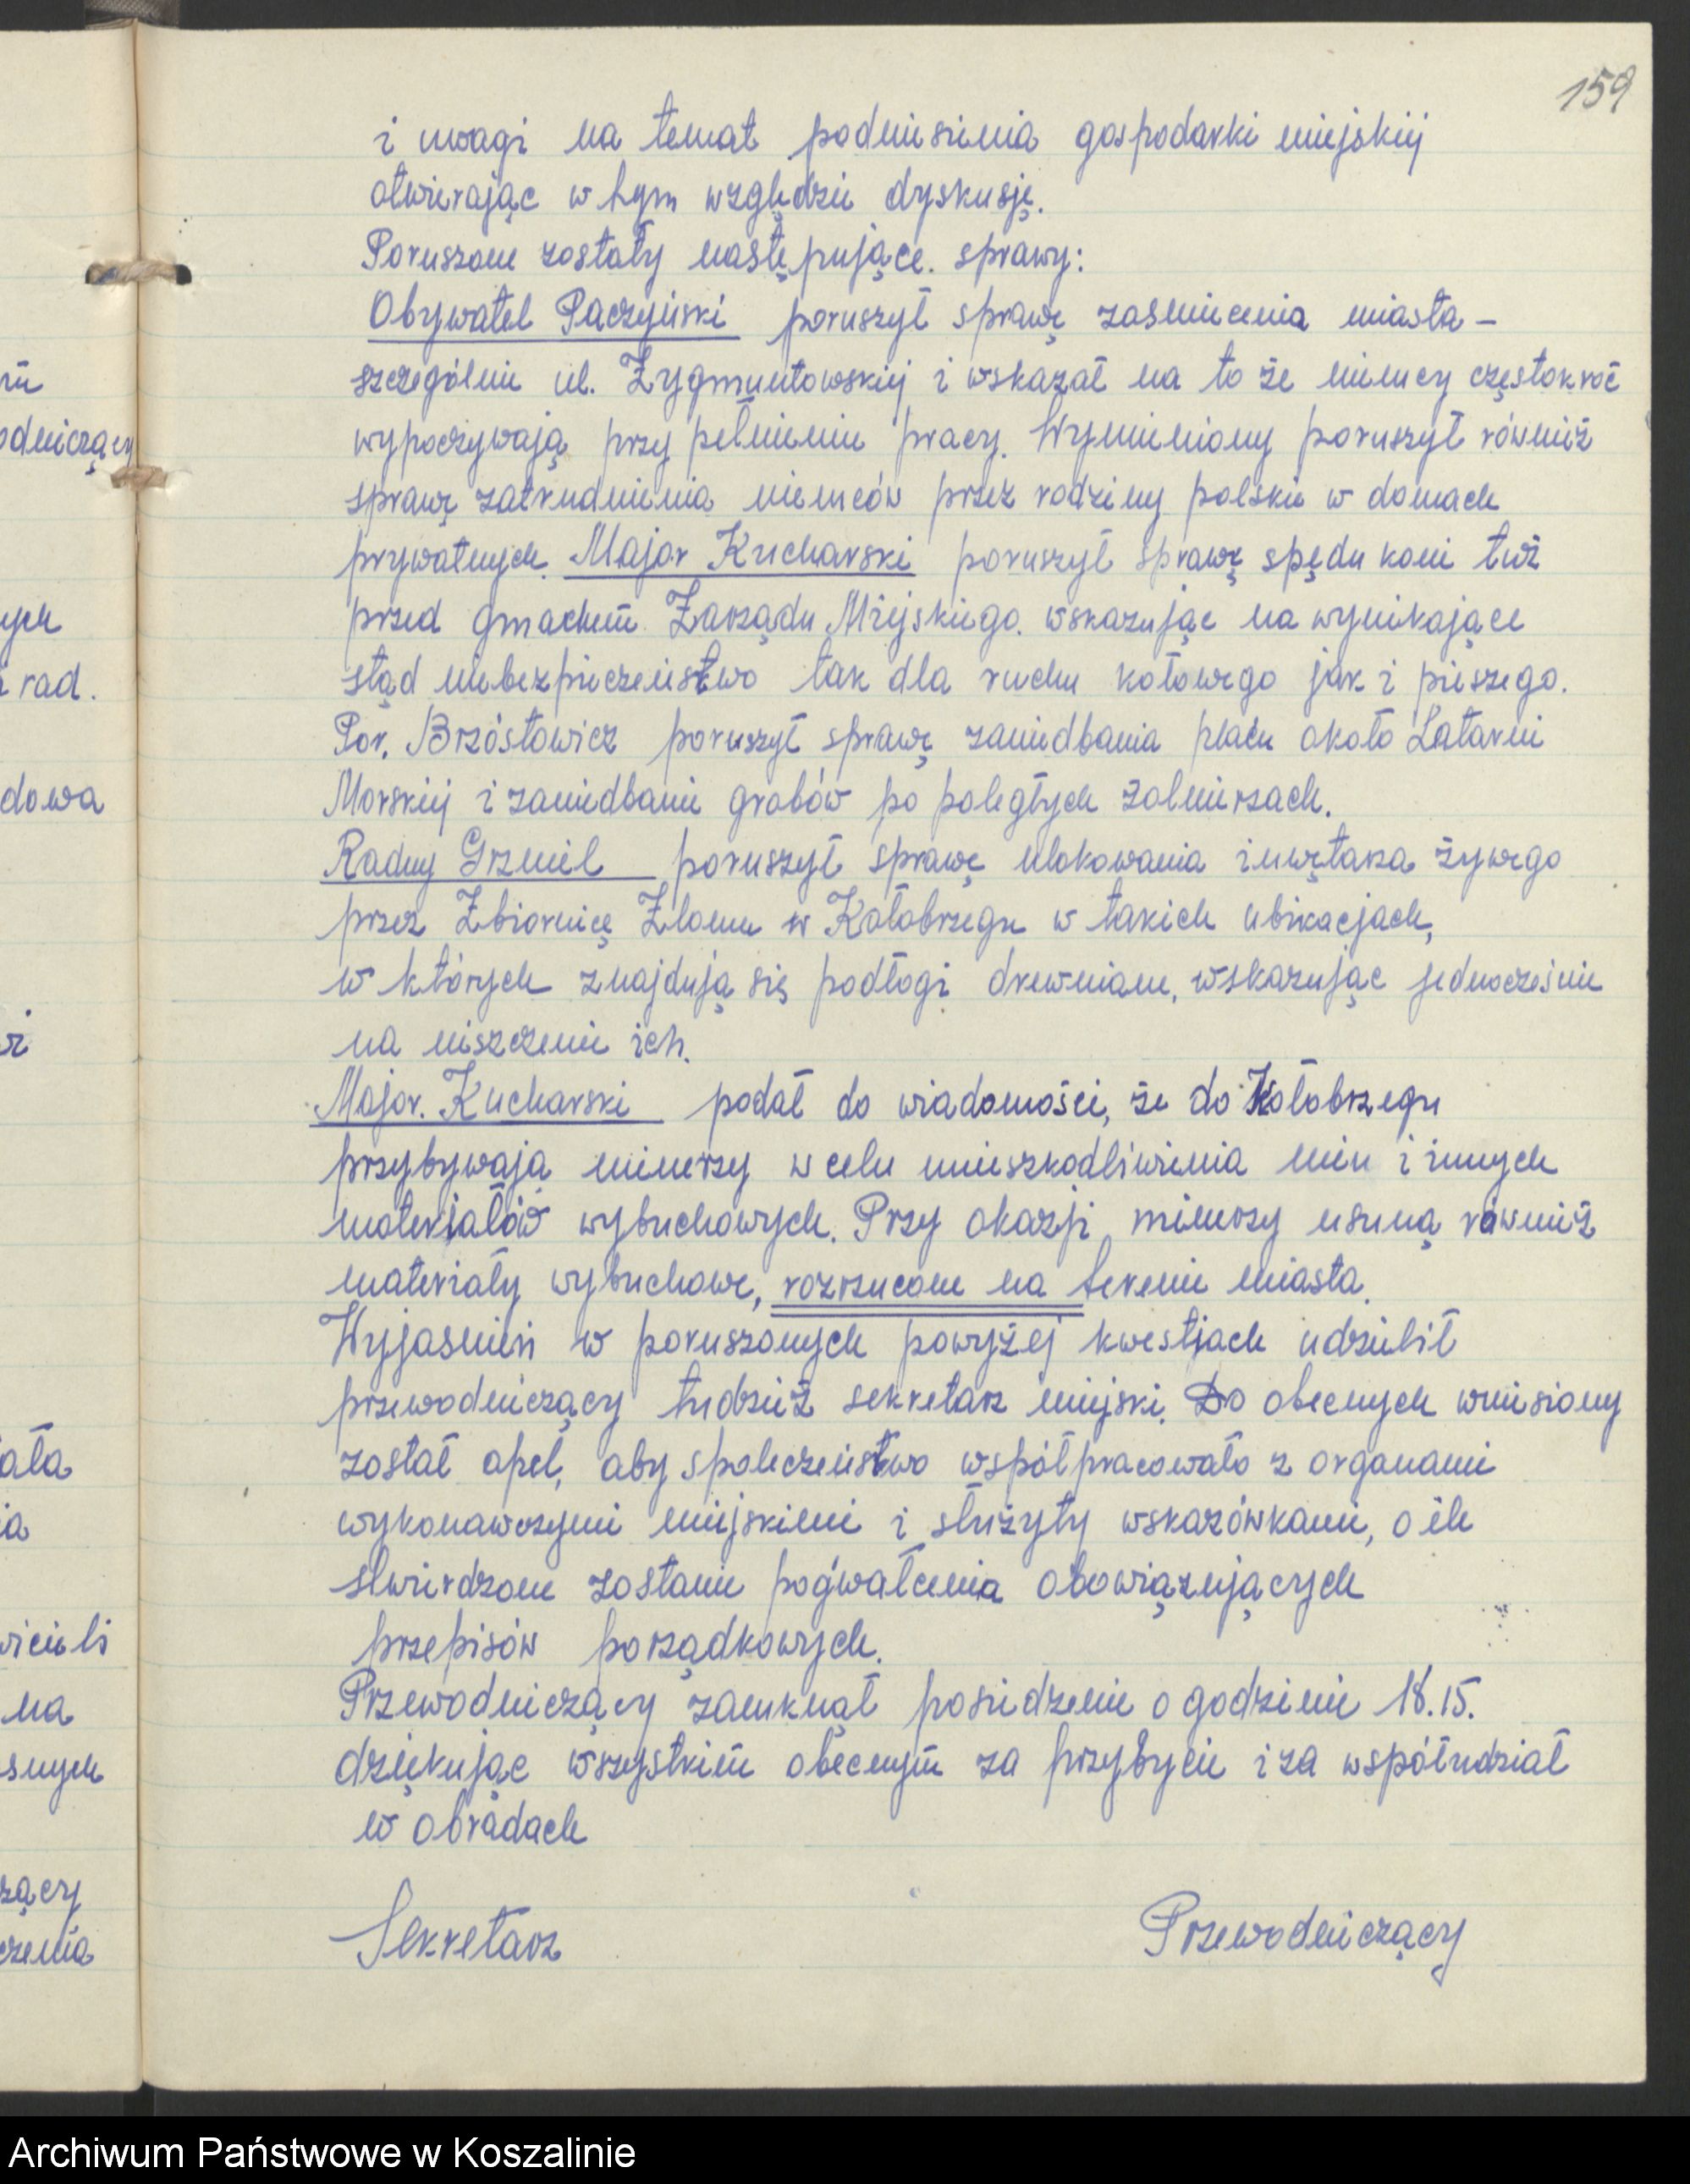 159
i uwagi na temat podniesienia gospodarki miejskiej
otwierając w tym względzie dyskusję.
Poruszone zostały następujące. sprawy:
Obywatel Paczyński poruszył sprawę zaśmiecenia miasta –
szczególnie ul. Zygmuntowskiej i wskazał na to że niemcy częstokroć
wypoczywają przy pełnieniu pracy. Wymieniony poruszył również
sprawę zatrudnienia niemców przez rodziny polskie w domach
prywatnych. Major Kucharski poruszył sprawę spędu koni tuż
przed gmachem Zarządu Miejskiego. wskazując na wynikające
stąd niebezpieczeństwo tak dla ruchu kołowego jak i pieszego.
Por. Brzóstowicz poruszył sprawę zaniedbania placu około Latarni
Morskiej i zaniedbanie grobów po poległych żołnierzach.
Radny Grzmil poruszył sprawę ulokowania inwętarza żywego
przez Zbiornicę Złomu w Kołobrzegu w takich ubikacjach,
w których znajdują się podłogi drewniane, wskazując jednocześnie
na niszczenie ich.
Major. Kucharski podał do wiadomości, że do Kołobrzegu
przybywają minerzy w celu unieszkodliwienia min i innych
materjałów wybuchowych. Przy okazji minerzy usuną również
materiały wybuchowe, rozrzucone na terenie miasta.
Wyjaśnień w poruszonych powyżej kwestjach udzielił
przewodniczący tudzież sekretarz miejski. Do obecnych wniesiony
został apel, aby społeczeństwo współpracowało z organami
wykonawczymi miejskiemi i służyły wskazówkami, o ile
stwierdzone zostanie pogwałcenia obowiązujących
przepisów porządkowych.
Przewodniczący zamknął posiedzenie o godzinie 18.15.
dziękując wszystkim obecnym za przybycie i za współudział
w obradach
Sekretarz Przewodniczący
Archiwum Państwowe w Koszalinie